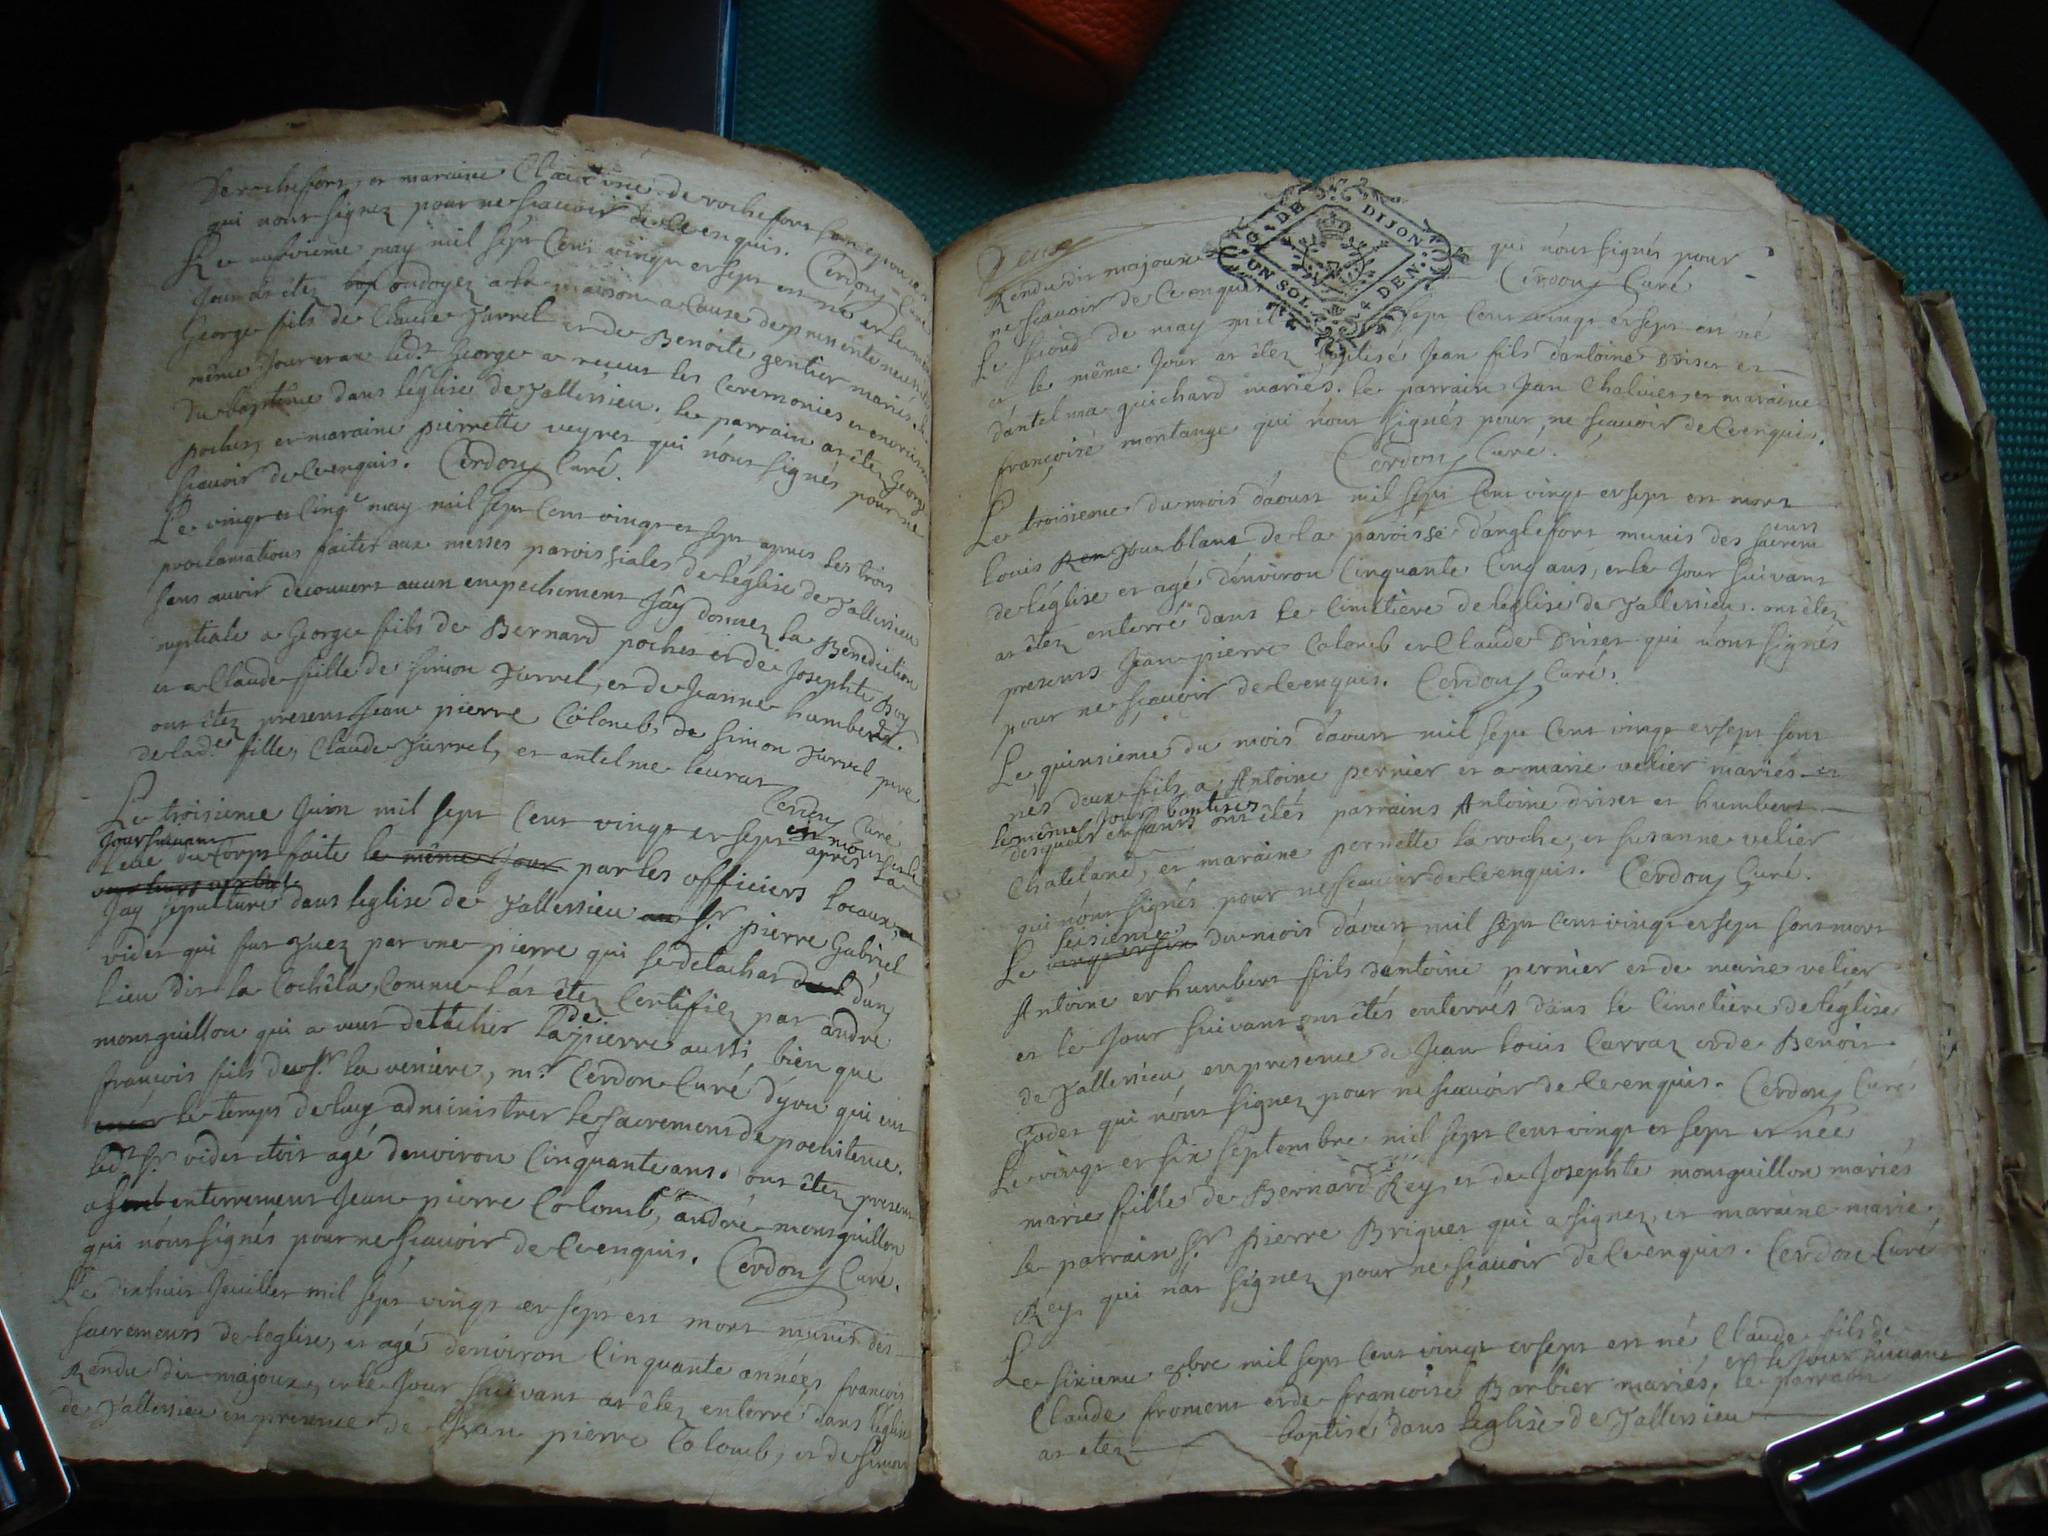 De rochefort, et maraine Claudine de rochefort son epouse
qui nont signez pour ne scavoir de ce enquis. Cerdon Curé
Le neufvieme may mil sept Cent vingt et sept est né et le même
Jour at étez ondoyez a la maison a Cause de
George fils de Claude Jurrel et de Benoite gentier mariés. le
même Jour et an led.t George a receut les Ceremonies
Du baptême dans léglise de Tallissieu. le parrain at étez George
poches, et maraine pierrette veyret qui nónt signés pour ne
scavoir de Ce enquis. Cerdon Curé.
Le vingt et Cinq.e may mil sept Cent vingt et sept apres les trois
proclamations faites aux messes paroissiales de léglise de Tallissieu
sans avoir decouvert aucun empechement J'ây donnez la Benediction
nuptiale a George fils de Bernard poches et de Josephte Rey
et a Claude fille de Simon Jurrel, et de Jeanne humbert.
ont êtez present Jean pierre Colomb, de Simon Jurrel pere
de lad.e fille, Claude Jurrel, et antelme leurat
Cerdon Curé
Le troisieme Juin mil sept Cent vingt et sept est mort et le
Jour suivant apres la
levé du Corps faite le même Jour par les officiers locaux, a
Jay sepulturé dans leglise de Tallissieu S.r pierre Gabriel
videt qui fut tuez par une pierre qui se detachat d'un
lieu dit la Cochêta, Comme l'at êtez Certifiez par andre
monguillon qui a veut detacher la de pierre aussi bien que
francois fils de S.r la veniere, m.r Cerdon Curé d'yon qui eut
le temps de luy administrer le sacrement de poenitence.
led.t S.r videt etoit agé denviron Cinquante ans. ont êtez present
a enterrement Jean pierre Colomb, andré monguillon
qui nónt signés pour ne scavoir de Ce enquis. Cerdon Curé.
Le dixhuit Juillet mil sept vingt et sept est mort munis des
sacrements de leglise, et agé denviron Cinquante années francois
Rendu dit majoux, et le Jour suivant at êtez enterré dans léglise
de Tallissieu en presence de Jean pierre Colomb, et de Simon
Deux
G. DE DIJON
UN SOL 4 DEN.
Rendu dit majoux qui nónt signés pour
ne scavoir de Ce enquis Cerdon Curé
Le second de may mil sept Cent vingt et sept est né
et le même Jour at êtez baptisé Jean fils d'antoine Driset et
d'antelma guichard mariés. le parrain Jean Chaluet, et maraine
françoise montange qui nónt signés pour ne scavoir de Ce enquis.
Cerdon Curé.
Le troisieme du mois d'aoust mil sept Cent vingt et sept est mort
louis Ren Joux blanc de la paroisse d'anglefort munis des sacrem
ents
de léglise et agé d'environ Cinquante Cinq ans, et le Jour suivant
at êtez enterré dans le Cimetière de leglise de Tallissieu. ont êtez
presents Jean pierre Colomb et Claude Driset qui nónt signés
pour ne scavoir de Ce enquis. Cerdon Curé.
Le quinsieme du mois d'aoust mil sept Cent vingt et sept sont
nés deux fils a Antoine pernier et a marie velier mariés et
le même Jour baptises
desquels enfants ont êtés parrains Antoine driset et humbert
Chateland, et maraine pernette la roche, et susanne velier
qui nónt signés pour ne scavoir de Ce enquis. Cerdon Curé.
seisieme
Le vingt et six du mois d'aoust mil sept Cent vingt et sept sont mort
Antoine et humbert fils d'antoine pernier et de marie velier
et le Jour suivant ont êtés enterrés dans le Cimetière de léglise
de Tallissieu en presence de Jean louis Carraz et de Benoit
Godet qui nónt signez pour ne scavoir de Ce enquis. Cerdon Curé
Le vingt et six septembre mil sept Cent vingt et sept et née
marie fille de Bernard Rey, et de Josephte monguillon mariés
le parrain S.r pierre Briguet qui a signez, et maraine marie
Rey, qui nat signez pour ne scavoir de Ce enquis. Cerdon Curé
Le sixieme bre mil sept Cent vingt et sept est né Claude fils de
Claude froment et de françoise Barbier mariés, et le Jour suivant
le parrain
at êtez baptisé dans leglise de Tallissieu